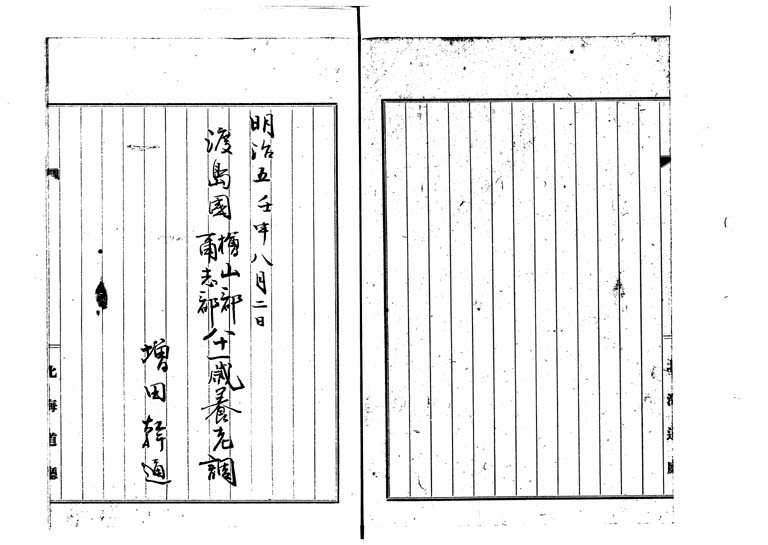 明治五壬申八月二日
渡島國
檜山郡
爾志郡
八十一歳養老調
増田幹通
北海道廳
北海道廳